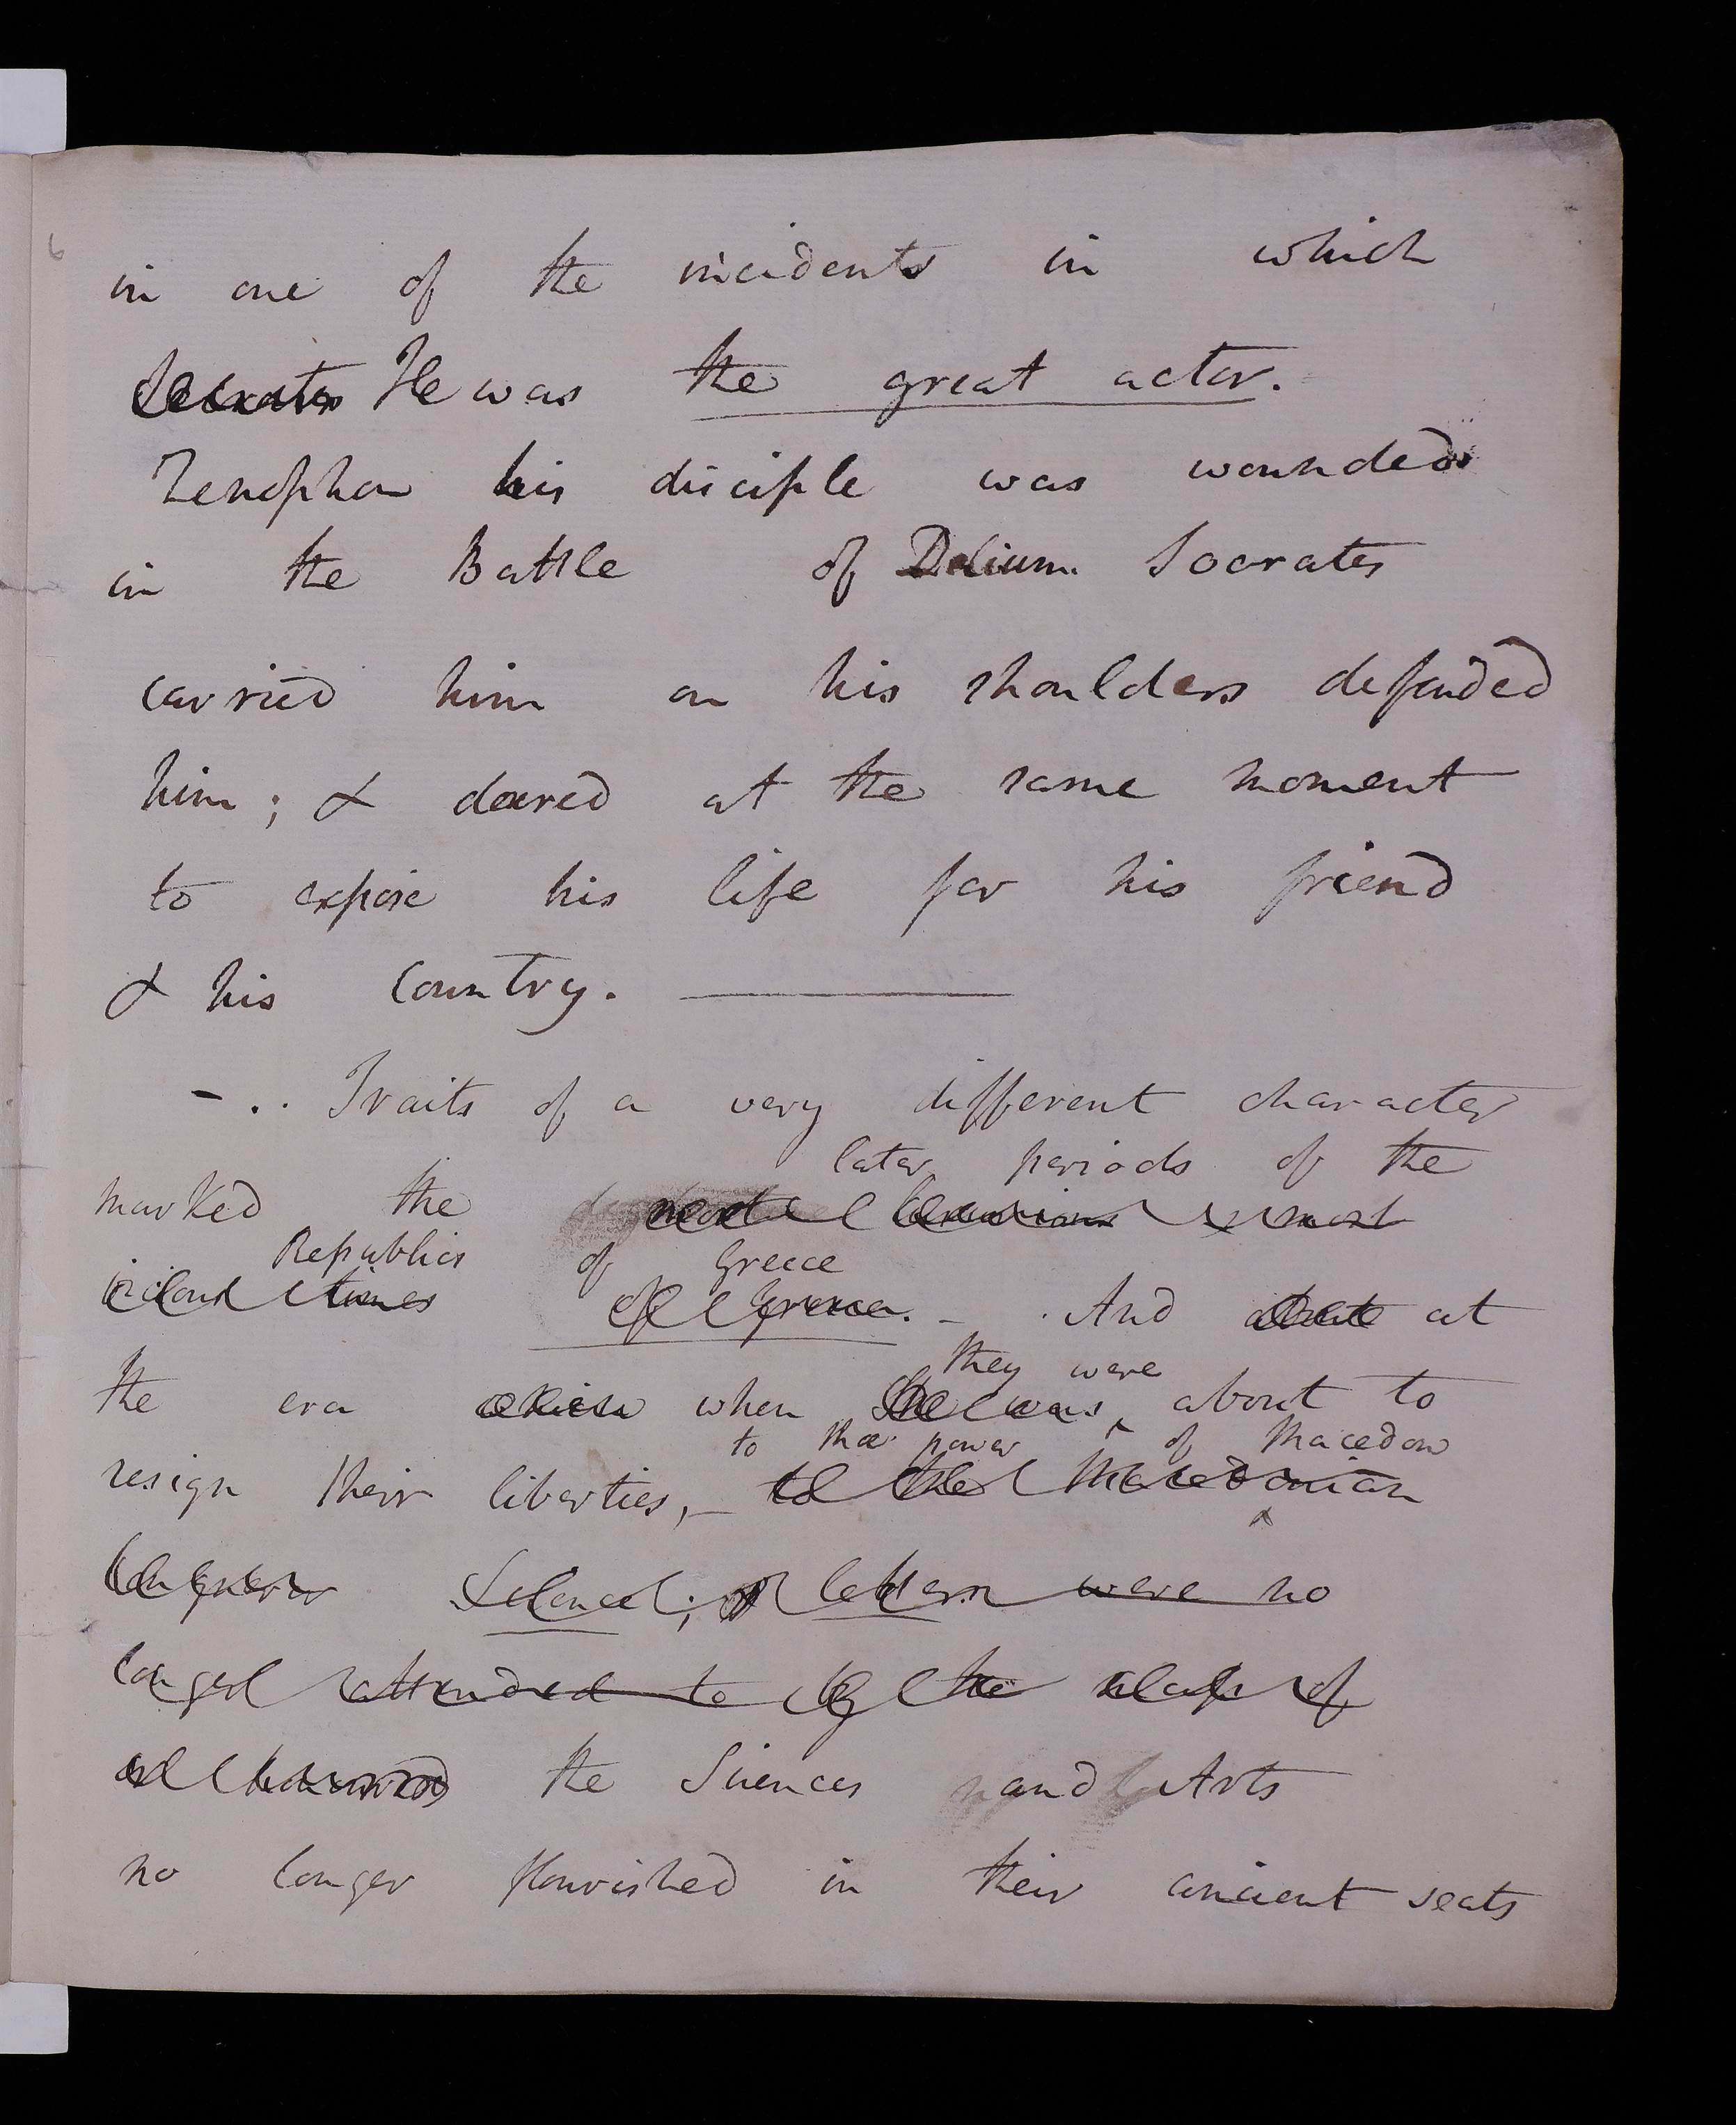 6
in one of the incidents in which
Socrates He was the great actor.
Zenophon his disciple was wounded
in the Battle of Delium Socrates
carried him on his shoulders defended
him; & dared at the same moment
to expose his life for his friend
& his Country.
- .. Traits of a very different character
later periods of the
marked the next most
Republics of Greece
times of Greece. - And at
they were
the era when she was about to
to the power of Macedon
resign their liberties, - to the Macedonian
Conqueror Science; & letters were no
longer attended to by the class of
the Sciences and Arts
no longer flourished in their ancient seats